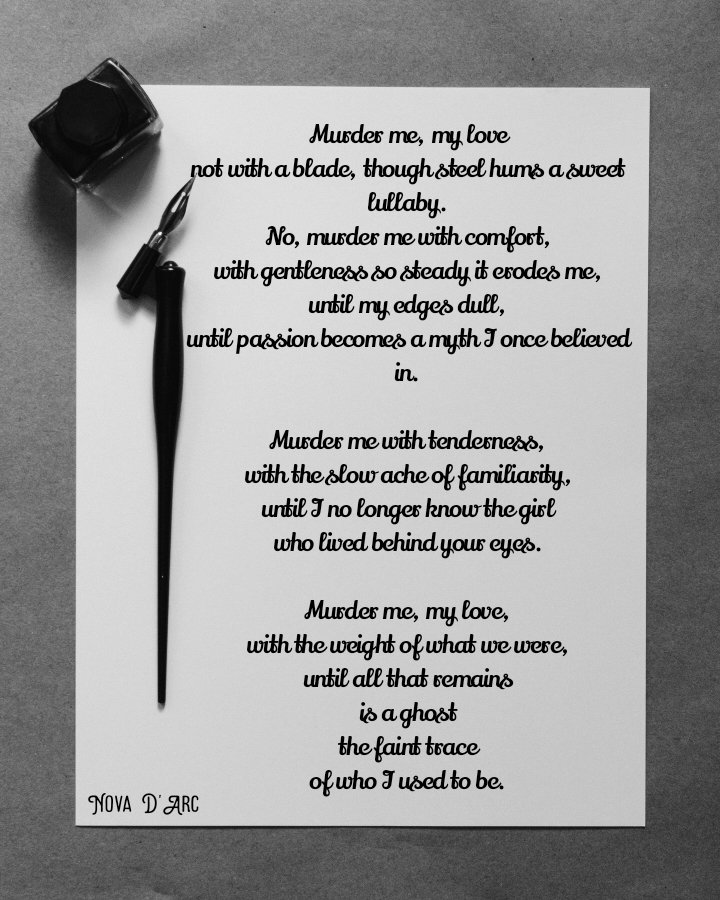 Murder me, my love
not with a blade, though steel hums a sweet
lullaby.
No, murder me with comfort,
with gentleness so steady it erodes me,
until my edges dull,
until passion becomes a myth I once believed
in.
Murder me with tenderness,
with the slow ache of familiarity,
until I no longer know the girl
who lived behind your eyes.
Murder me, my love,
with the weight of what we were,
until all that remains
is a ghost
the faint trace
of who I used to be.
Nova D'Arc